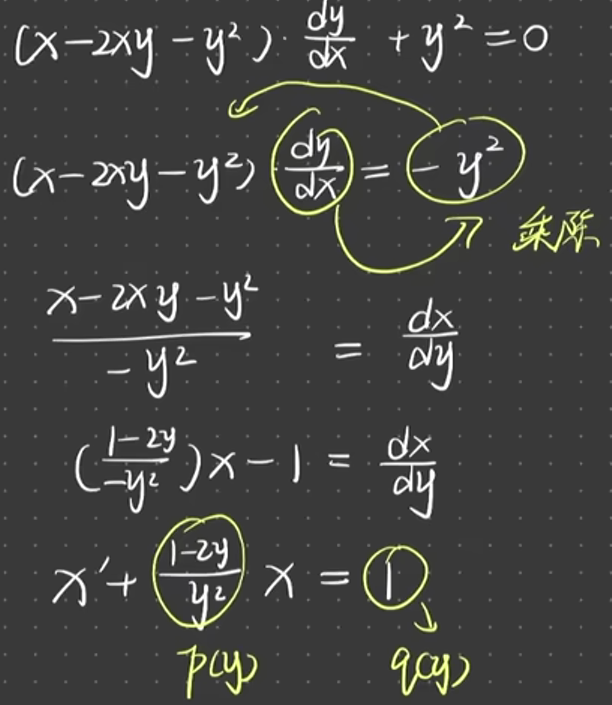 (x-2xy-y²)·dy/dx+y²=0
(x-2xy-y²) dy/dx = -y²
乘除
(x-2xy-y²)/(-y²) = dx/dy
((1-2y)/(-y²))x-1 = dx/dy
x'+ (1-2y)/y² x = 1
p(y) q(y)